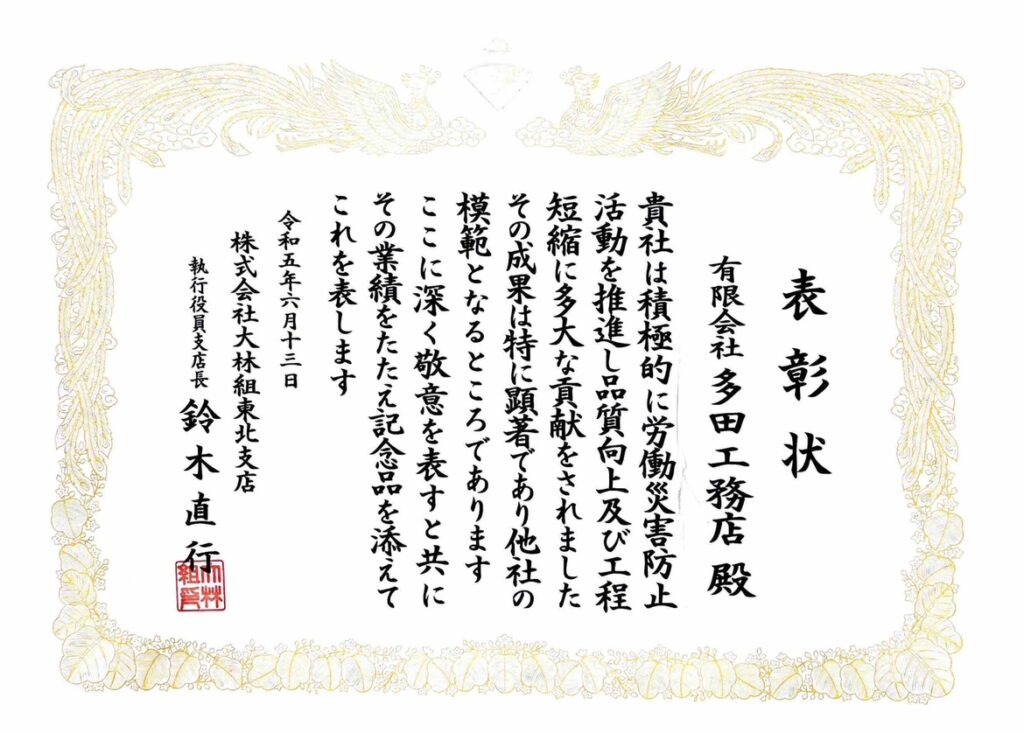 表彰状
有限会社 多田工務店 殿
貴社は積極的に労働災害防止
活動を推進し品質向上及び工程
短縮に多大な貢献をされました
その成果は特に顕著であり他社の
模範となるところであります
ここに深く敬意を表すと共に
その業績をたたえ記念品を添えて
これを表します
令和五年六月十三日
株式会社大林組東北支店
執行役員支店長 鈴木直行